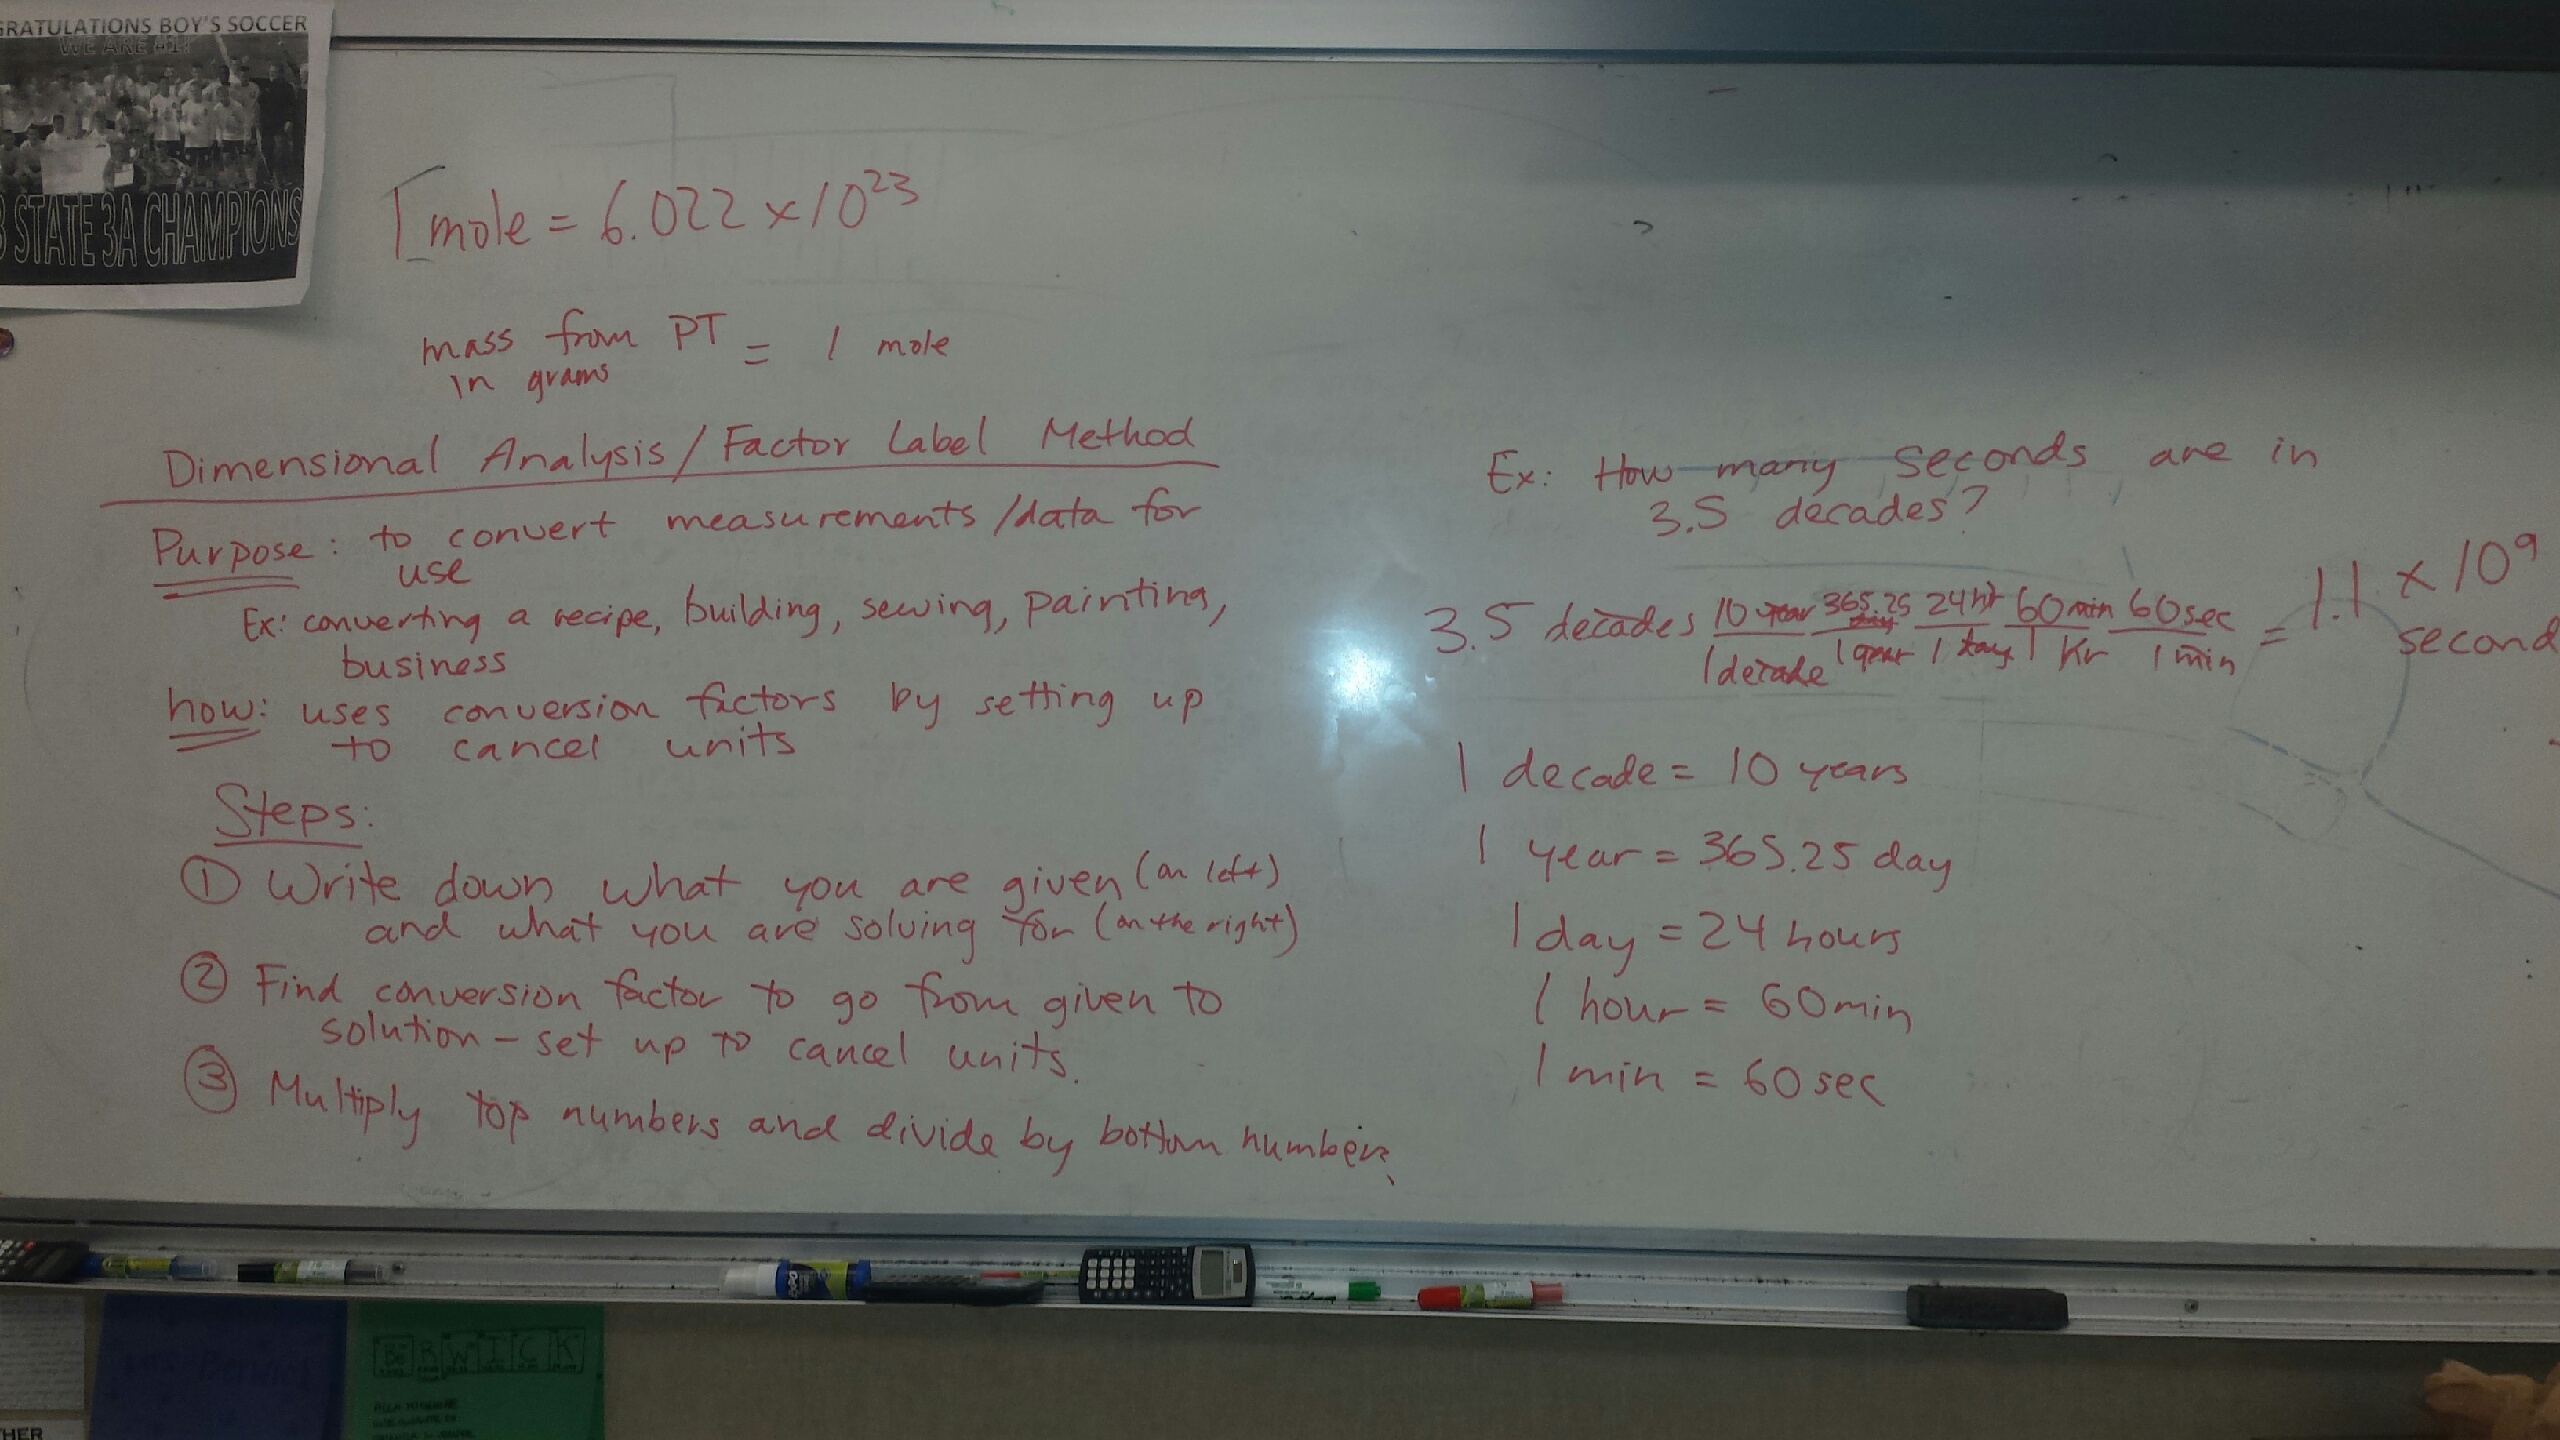 GRATULATIONS BOY'S SOCCER
WE ARE #1!
STATE 3A CHAMPIONS
1 mole = 6.022 x 10²³
mass from PT = 1 mole
in grams
Dimensional Analysis / Factor Label Method
Purpose: to convert measurements/data for
use
Ex: converting a recipe, building, sewing, painting,
business
how: uses conversion factors by setting up
to cancel units
Steps:
① Write down what you are given (on left)
and what you are solving for (on the right)
② Find conversion factor to go from given to
solution - set up to cancel units.
③ Multiply top numbers and divide by bottom numbers.
Ex: How many seconds are in
3.5 decades?
3.5 decades 10 year 365.25 day 24 hr 60 min 60 sec = 1.1 x 10⁹
1 decade 1 year 1 day 1 hr 1 min second
1 decade = 10 years
1 year = 365.25 day
1 day = 24 hours
1 hour = 60 min
1 min = 60 sec
BRWICK
THER